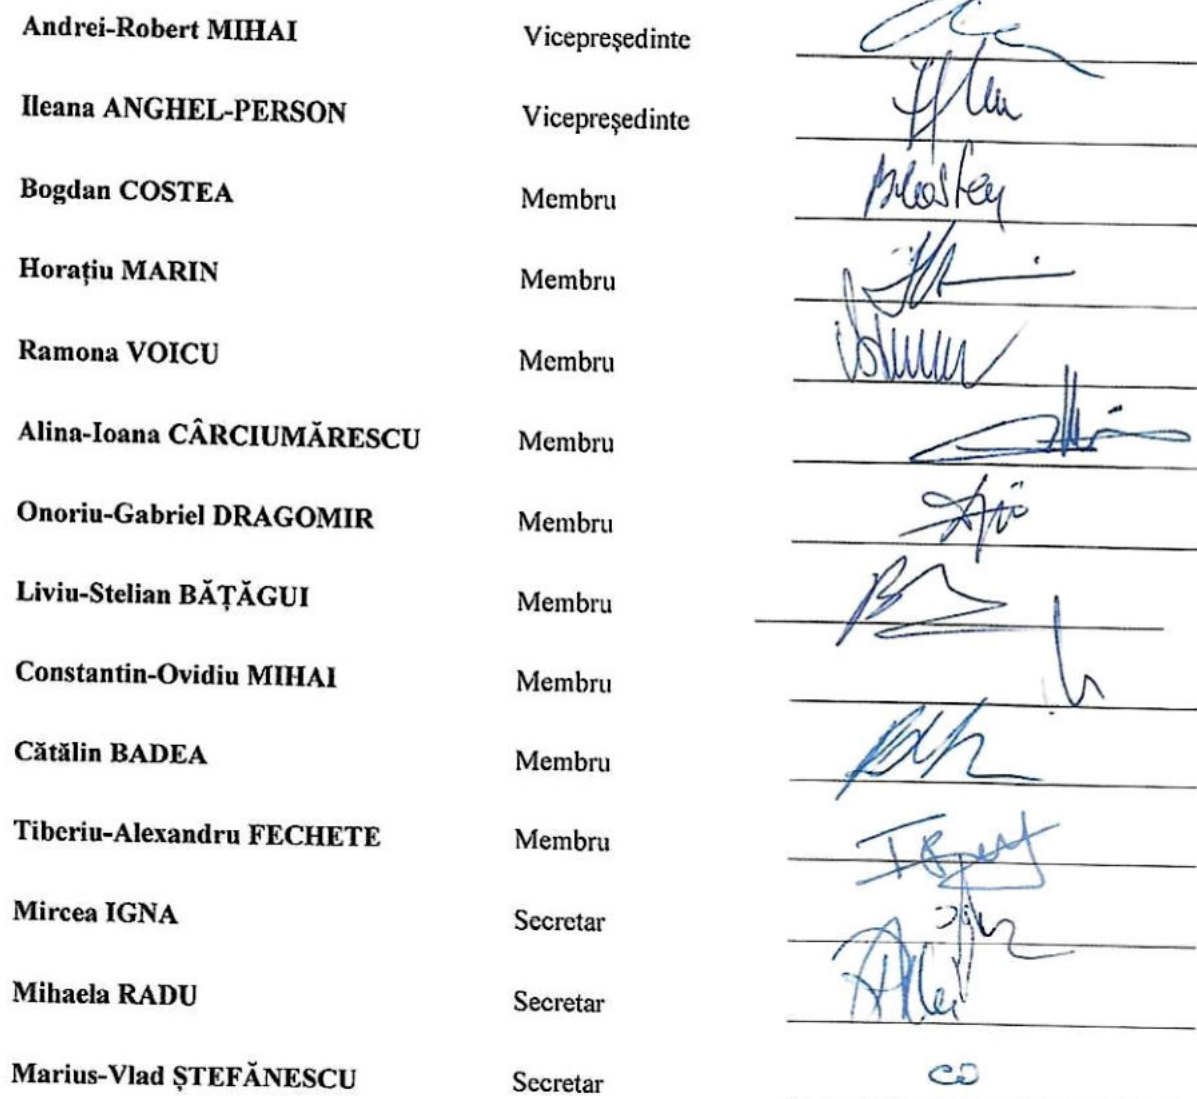 Andrei-Robert MIHAI Vicepreședinte
Ileana ANGHEL-PERSON Vicepreședinte
Bogdan COSTEA Membru
Horațiu MARIN Membru
Ramona VOICU Membru
Alina-Ioana CÂRCIUMĂRESCU Membru
Onoriu-Gabriel DRAGOMIR Membru
Liviu-Stelian BĂȚĂGUI Membru
Constantin-Ovidiu MIHAI Membru
Cătălin BADEA Membru
Tiberiu-Alexandru FECHETE Membru
Mircea IGNA Secretar
Mihaela RADU Secretar
Marius-Vlad ȘTEFĂNESCU Secretar